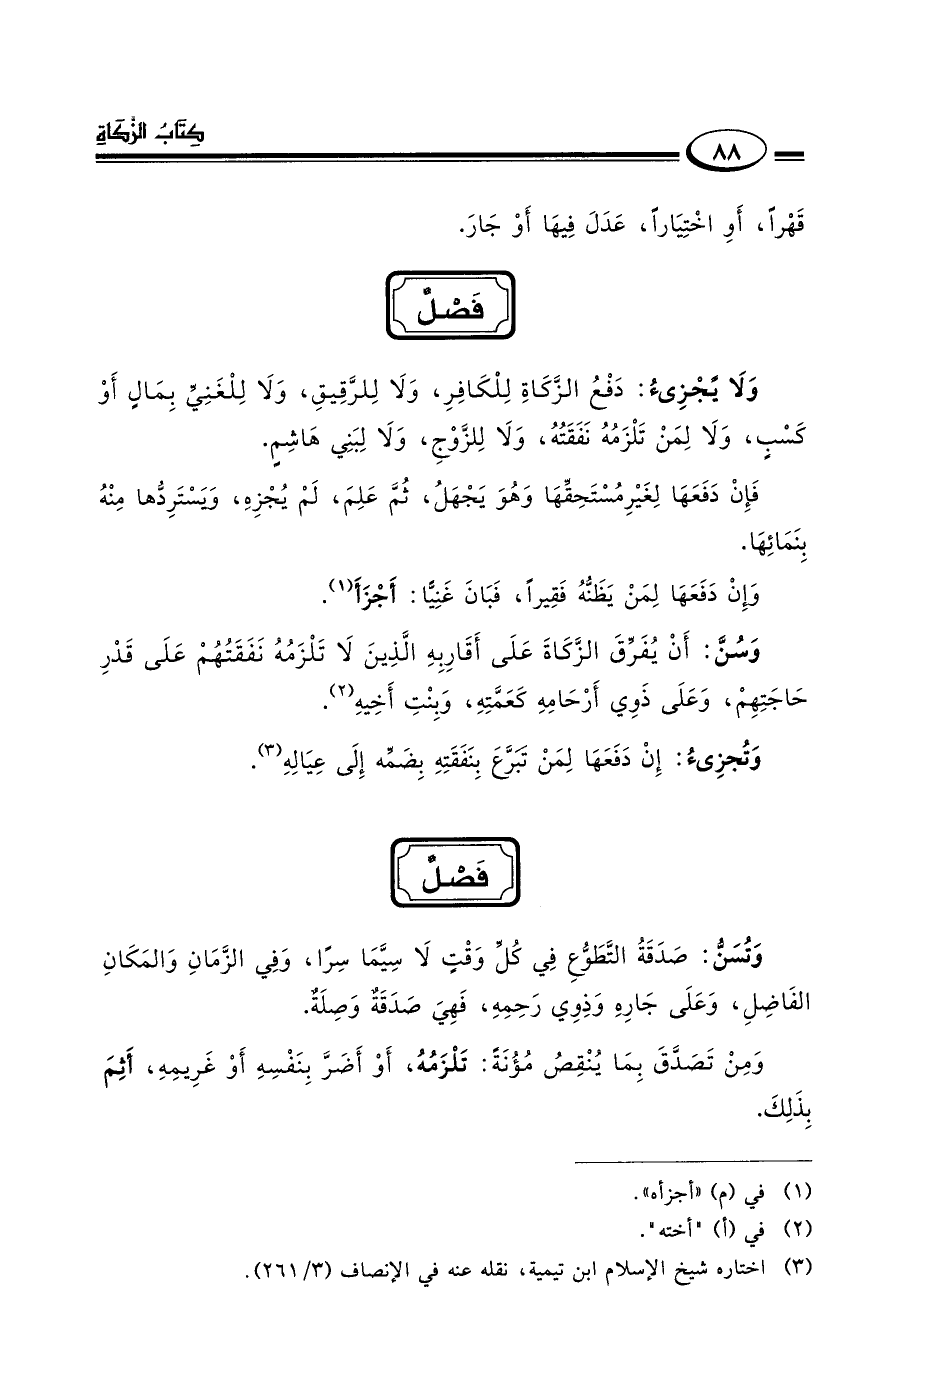 كِتَابُ الزَّكَاةِ
٨٨
قَهْراً، أَوِ اخْتِيَاراً، عَدَلَ فِيهَا أَوْ جَارَ.
فَصْلٌ
وَلَا يَجْزِىءُ: دَفْعُ الزَّكَاةِ لِلْكَافِرِ، وَلَا لِلرَّقِيقِ، وَلَا لِلْغَنِيِّ بِمَالٍ أَوْ
كَسْبٍ، وَلَا لِمَنْ تَلْزَمُهُ نَفَقَتُهُ، وَلَا لِلزَّوْجِ، وَلَا لِبَنِي هَاشِمٍ.
فَإِنْ دَفَعَهَا لِغَيْرِ مُسْتَحِقِّهَا وَهُوَ يَجْهَلُ، ثُمَّ عَلِمَ، لَمْ يُجْزِهِ، وَيَسْتَرِدُّها مِنْهُ
بِنَمَائِهَا.
وَإِنْ دَفَعَهَا لِمَنْ يَظَنُّهُ فَقِيراً، فَبَانَ غَنِيًّا: أَجْزَأَ(١).
وَسُنَّ: أَنْ يُفَرِّقَ الزَّكَاةَ عَلَى أَقَارِبِهِ الَّذِينَ لَا تَلْزَمُهُ نَفَقَتُهُمْ عَلَى قَدْرِ
حَاجَتِهِمْ، وَعَلَى ذَوِي أَرْحَامِهِ كَعَمَّتِهِ، وَبِنْتِ أَخِيهِ(٢).
وَتُجزِىءُ: إِنْ دَفَعَهَا لِمَنْ تَبَرَّعَ بِنَفَقَتِهِ بِضَمِّه إِلَى عِيَالِهِ(٣).
فَصْلٌ
وَتُسَنُّ: صَدَقَةُ التَّطَوُّعِ فِي كُلِّ وَقْتٍ لَا سِيَّمَا سِرًّا، وَفِي الزَّمَانِ وَالمَكَانِ
الفَاضِلِ، وَعَلَى جَارِهِ وَذِوِي رَحِمِهِ، فَهِيَ صَدَقَةٌ وَصِلَةٌ.
وَمِنْ تَصَدَّقَ بِمَا يُنْقِصُ مُؤُنَةً: تَلْزَمُهُ، أَوْ أَضَرَّ بِنَفْسِهِ أَوْ غَرِيمِهِ، أَثِمَ
بِذَلِكَ.
(١) في (م) «أجزأه».
(٢) في (أ) "أخته".
(٣) اختاره شيخ الإسلام ابن تيمية، نقله عنه في الإنصاف (٣/ ٢٦١).